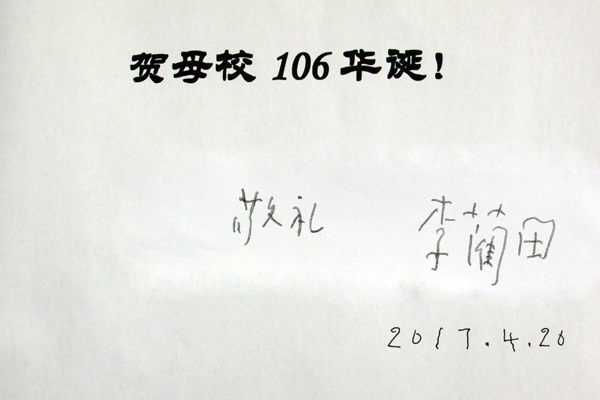 贺母校 106 华诞！
敬礼 李蔺田
2017.4.20